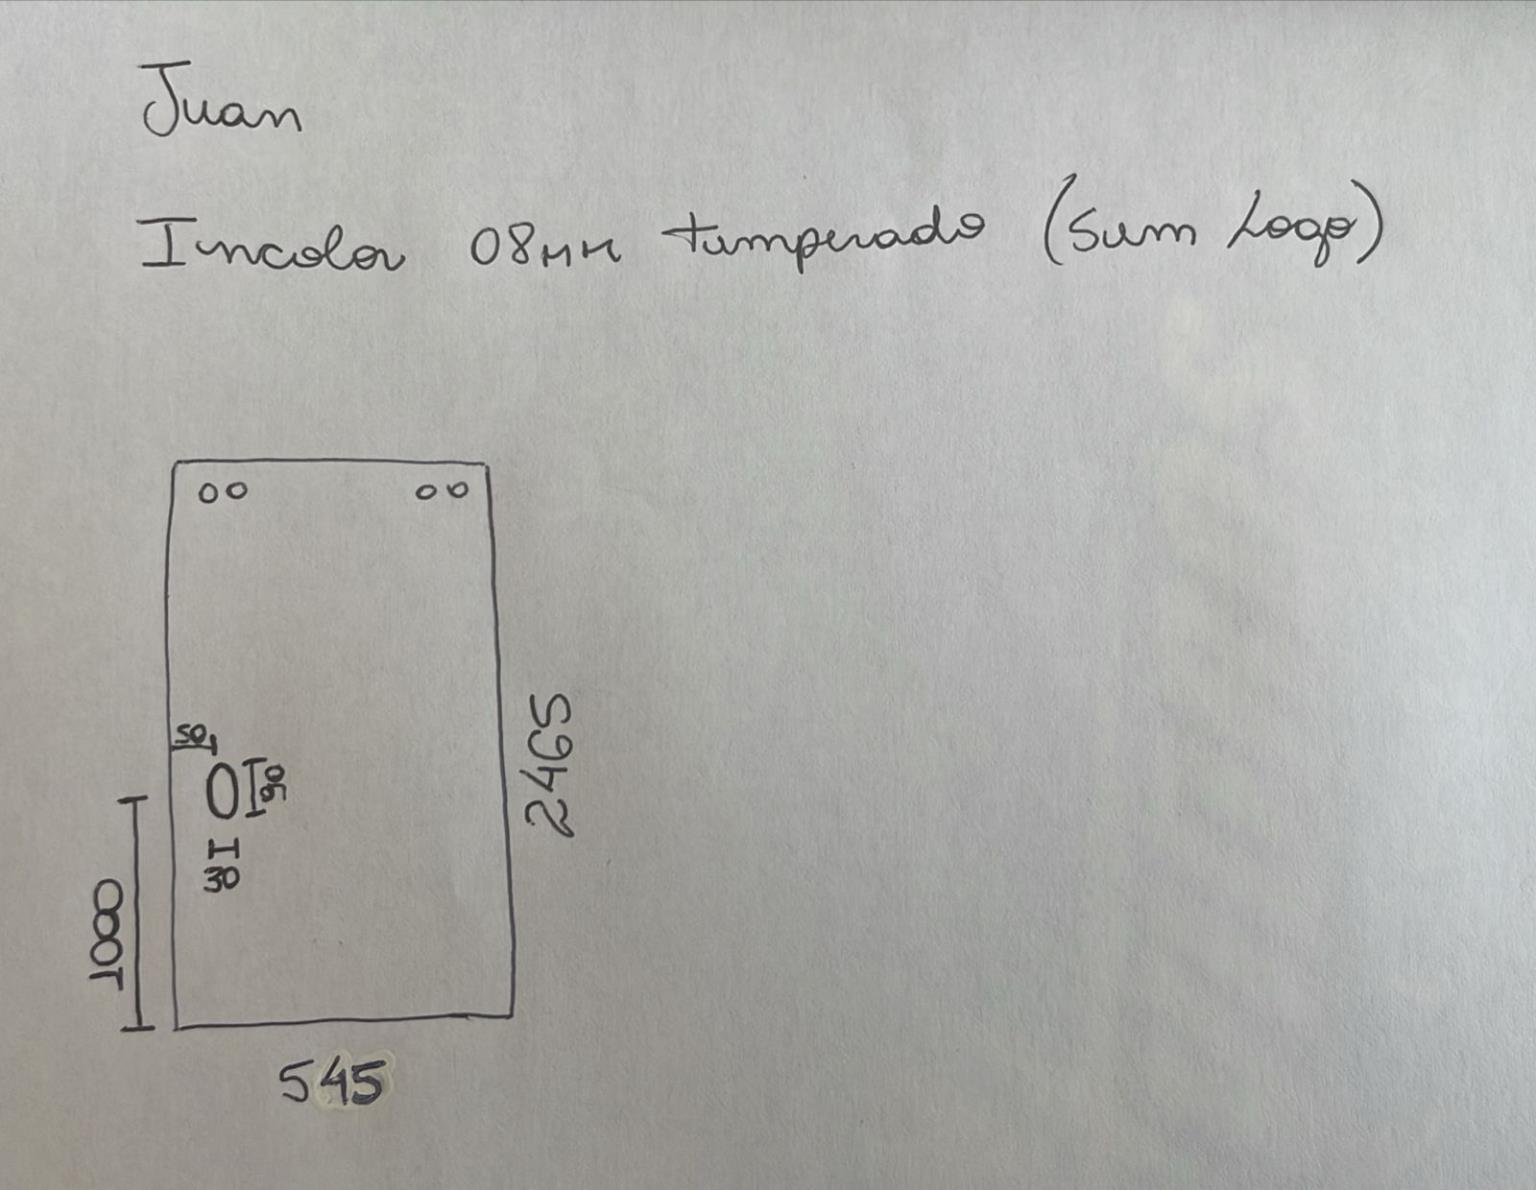 Juan
Incolor 08mm temperado (sem Logo)
50
90
30
2465
1000
545